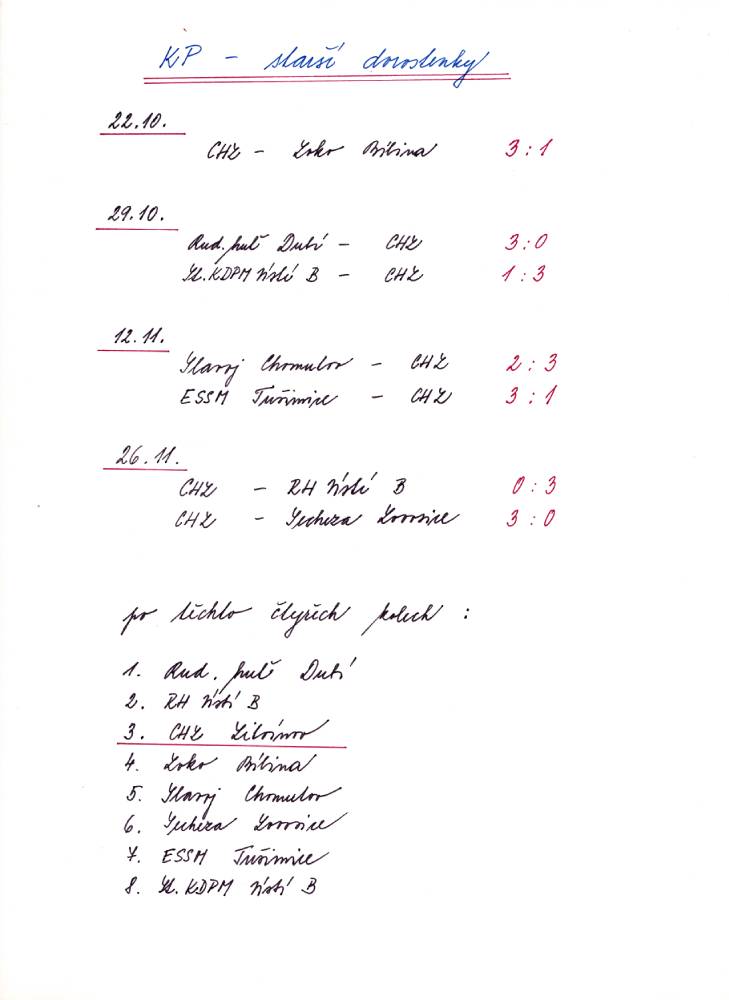 KP - starší dorostenky
22.10.
CHZ - Loko Bílina 3 : 1
29.10.
Rud. huť Dubí - CHZ 3 : 0
Sl. KDPM Ústí B - CHZ 1 : 3
12.11.
Slavoj Chomutov - CHZ 2 : 3
ESSM Tušimice - CHZ 3 : 1
26.11.
CHZ - RH Ústí B 0 : 3
CHZ - Secheza Lovosice 3 : 0
po těchto čtyřech kolech :
1. Rud. huť Dubí
2. RH Ústí B
3. CHZ Litvínov
4. Loko Bílina
5. Slavoj Chomutov
6. Secheza Lovosice
7. ESSM Tušimice
8. Sl. KDPM Ústí B